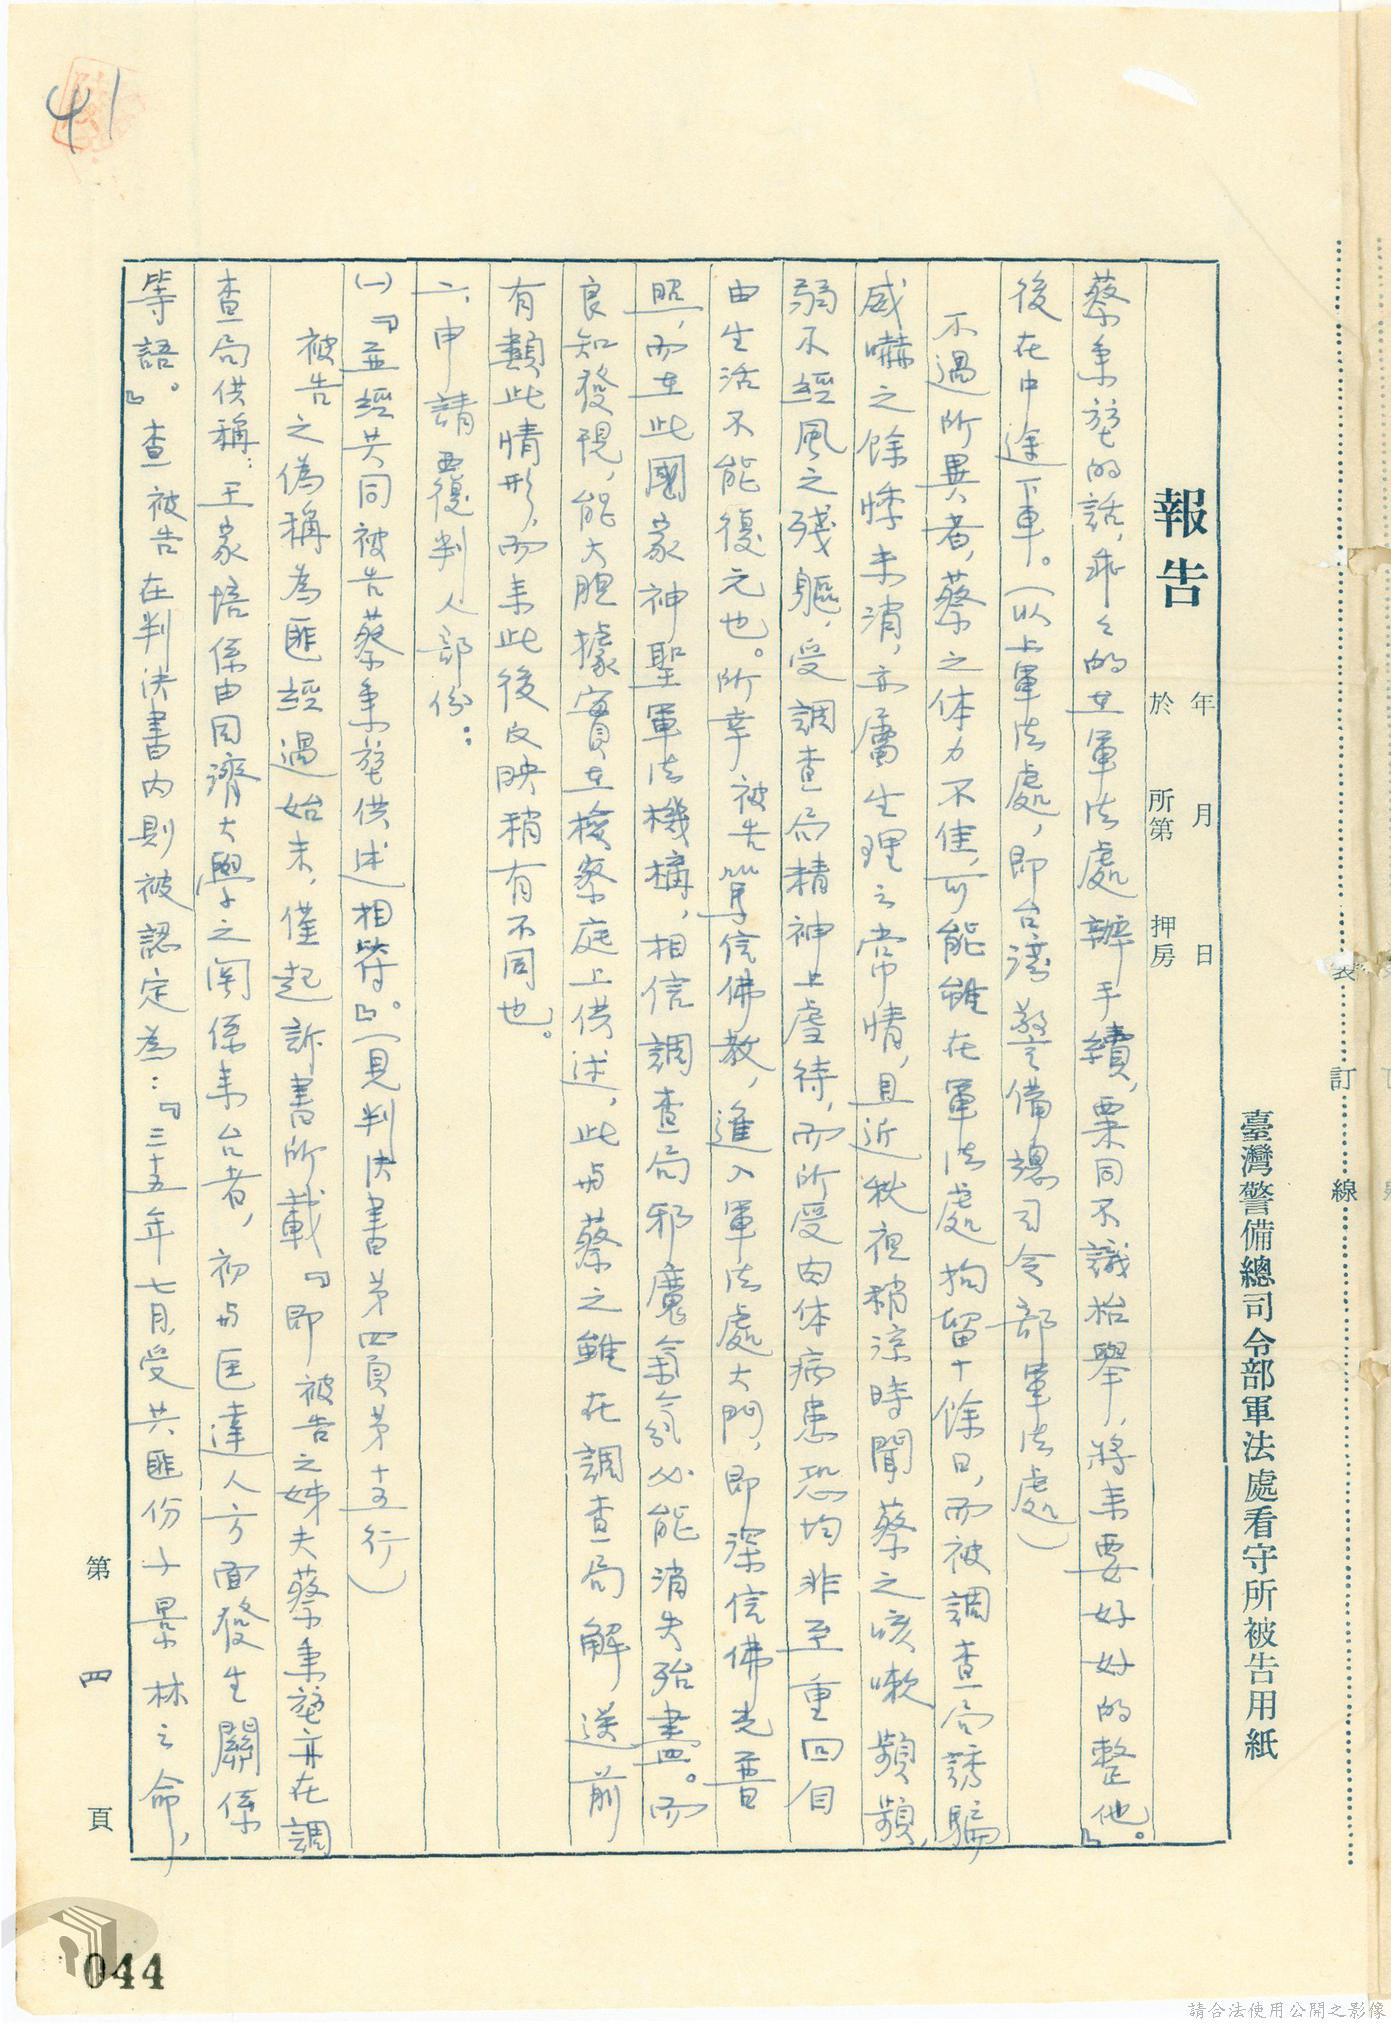 臺灣警備總司令部軍法處看守所被告用紙
報告
年 月 日
於 所第 押房
蔡秉堃的話，乖々的在軍法處辦手續，要同不識抬舉，將來要好好的整他。』
後在中途下車。（以上軍法處，即台灣警備總司令部軍法處）
不過所異者，蔡之体力不佳，可能雖在軍法處拘留十餘日，而被調查局誘騙
威嚇之餘悸未消，亦屬生理之常情，且近秋夜稍涼時聞蔡之咳嗽頻頻，
弱不經風之殘軀，受調查局精神上虐待，而所受肉体病患恐均非至重回自
由生活不能復元也。所幸被告篤信佛教，進入軍法處大門，即深信佛光普
照，而在此國家神聖軍法機構，相信調查局邪魔氣氛必能消失殆盡。而
良知發現，能大胆據實在檢察庭上供述，此與蔡之雖在調查局解送前
有類此情形，而來此後反映稍有不同也。
二、申請覆判人部份：
(一)『並經共同被告蔡秉堃供述相符』。（見判決書第四頁第十五行）
被告之偽稱為匪經過始末，僅起訴書所載『即被告之姊夫蔡秉堃亦在調
查局供稱：王家培係由同濟大學之関係來台者，初與匪達人方面發生關係
等語。』查被告在判決書內則被認定為：『三十五年七月，受共匪份子景林之命，
第 四 頁
裝 訂 線
41
044
請合法使用公開之影像